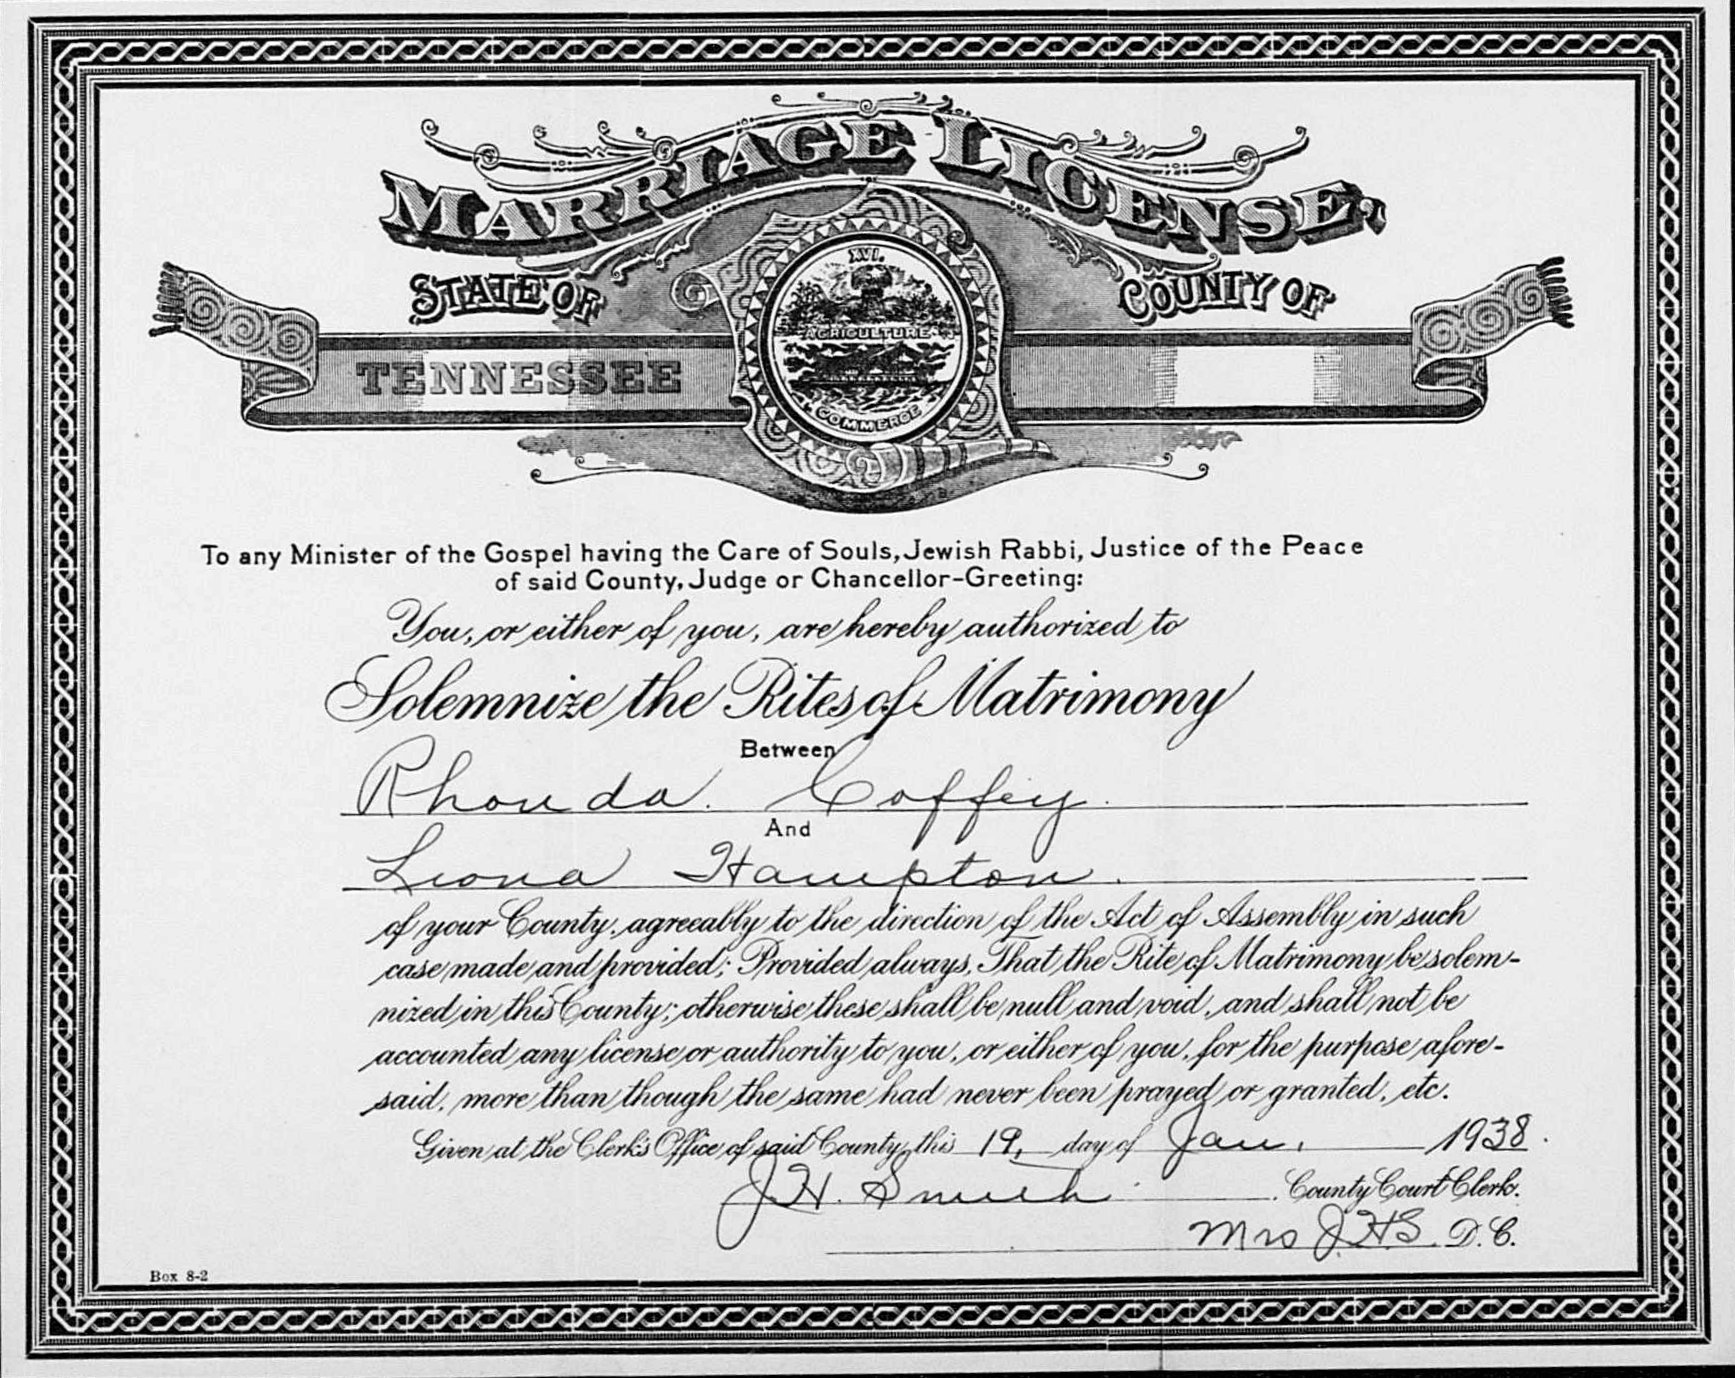 MARRIAGE LICENSE,
STATE OF
COUNTY OF
TENNESSEE
XVI.
AGRICULTURE
COMMERCE
To any Minister of the Gospel having the Care of Souls, Jewish Rabbi, Justice of the Peace
of said County, Judge or Chancellor-Greeting:
You, or either of you, are hereby authorized to
Solemnize the Rites of Matrimony
Between
Rhonda Coffey
And
Leona Hampton
of your County, agreeably to the direction of the Act of Assembly in such
case made and provided; Provided always, That the Rite of Matrimony be solem-
nized in this County; otherwise these shall be null and void, and shall not be
accounted any license or authority to you, or either of you, for the purpose afore-
said, more than though the same had never been prayed or granted, etc.
Given at the Clerk's Office of said County, this 19, day of Jan, 1938.
J.H. Smith County Court Clerk.
Mrs J.H.S. D.C.
Box 8-2